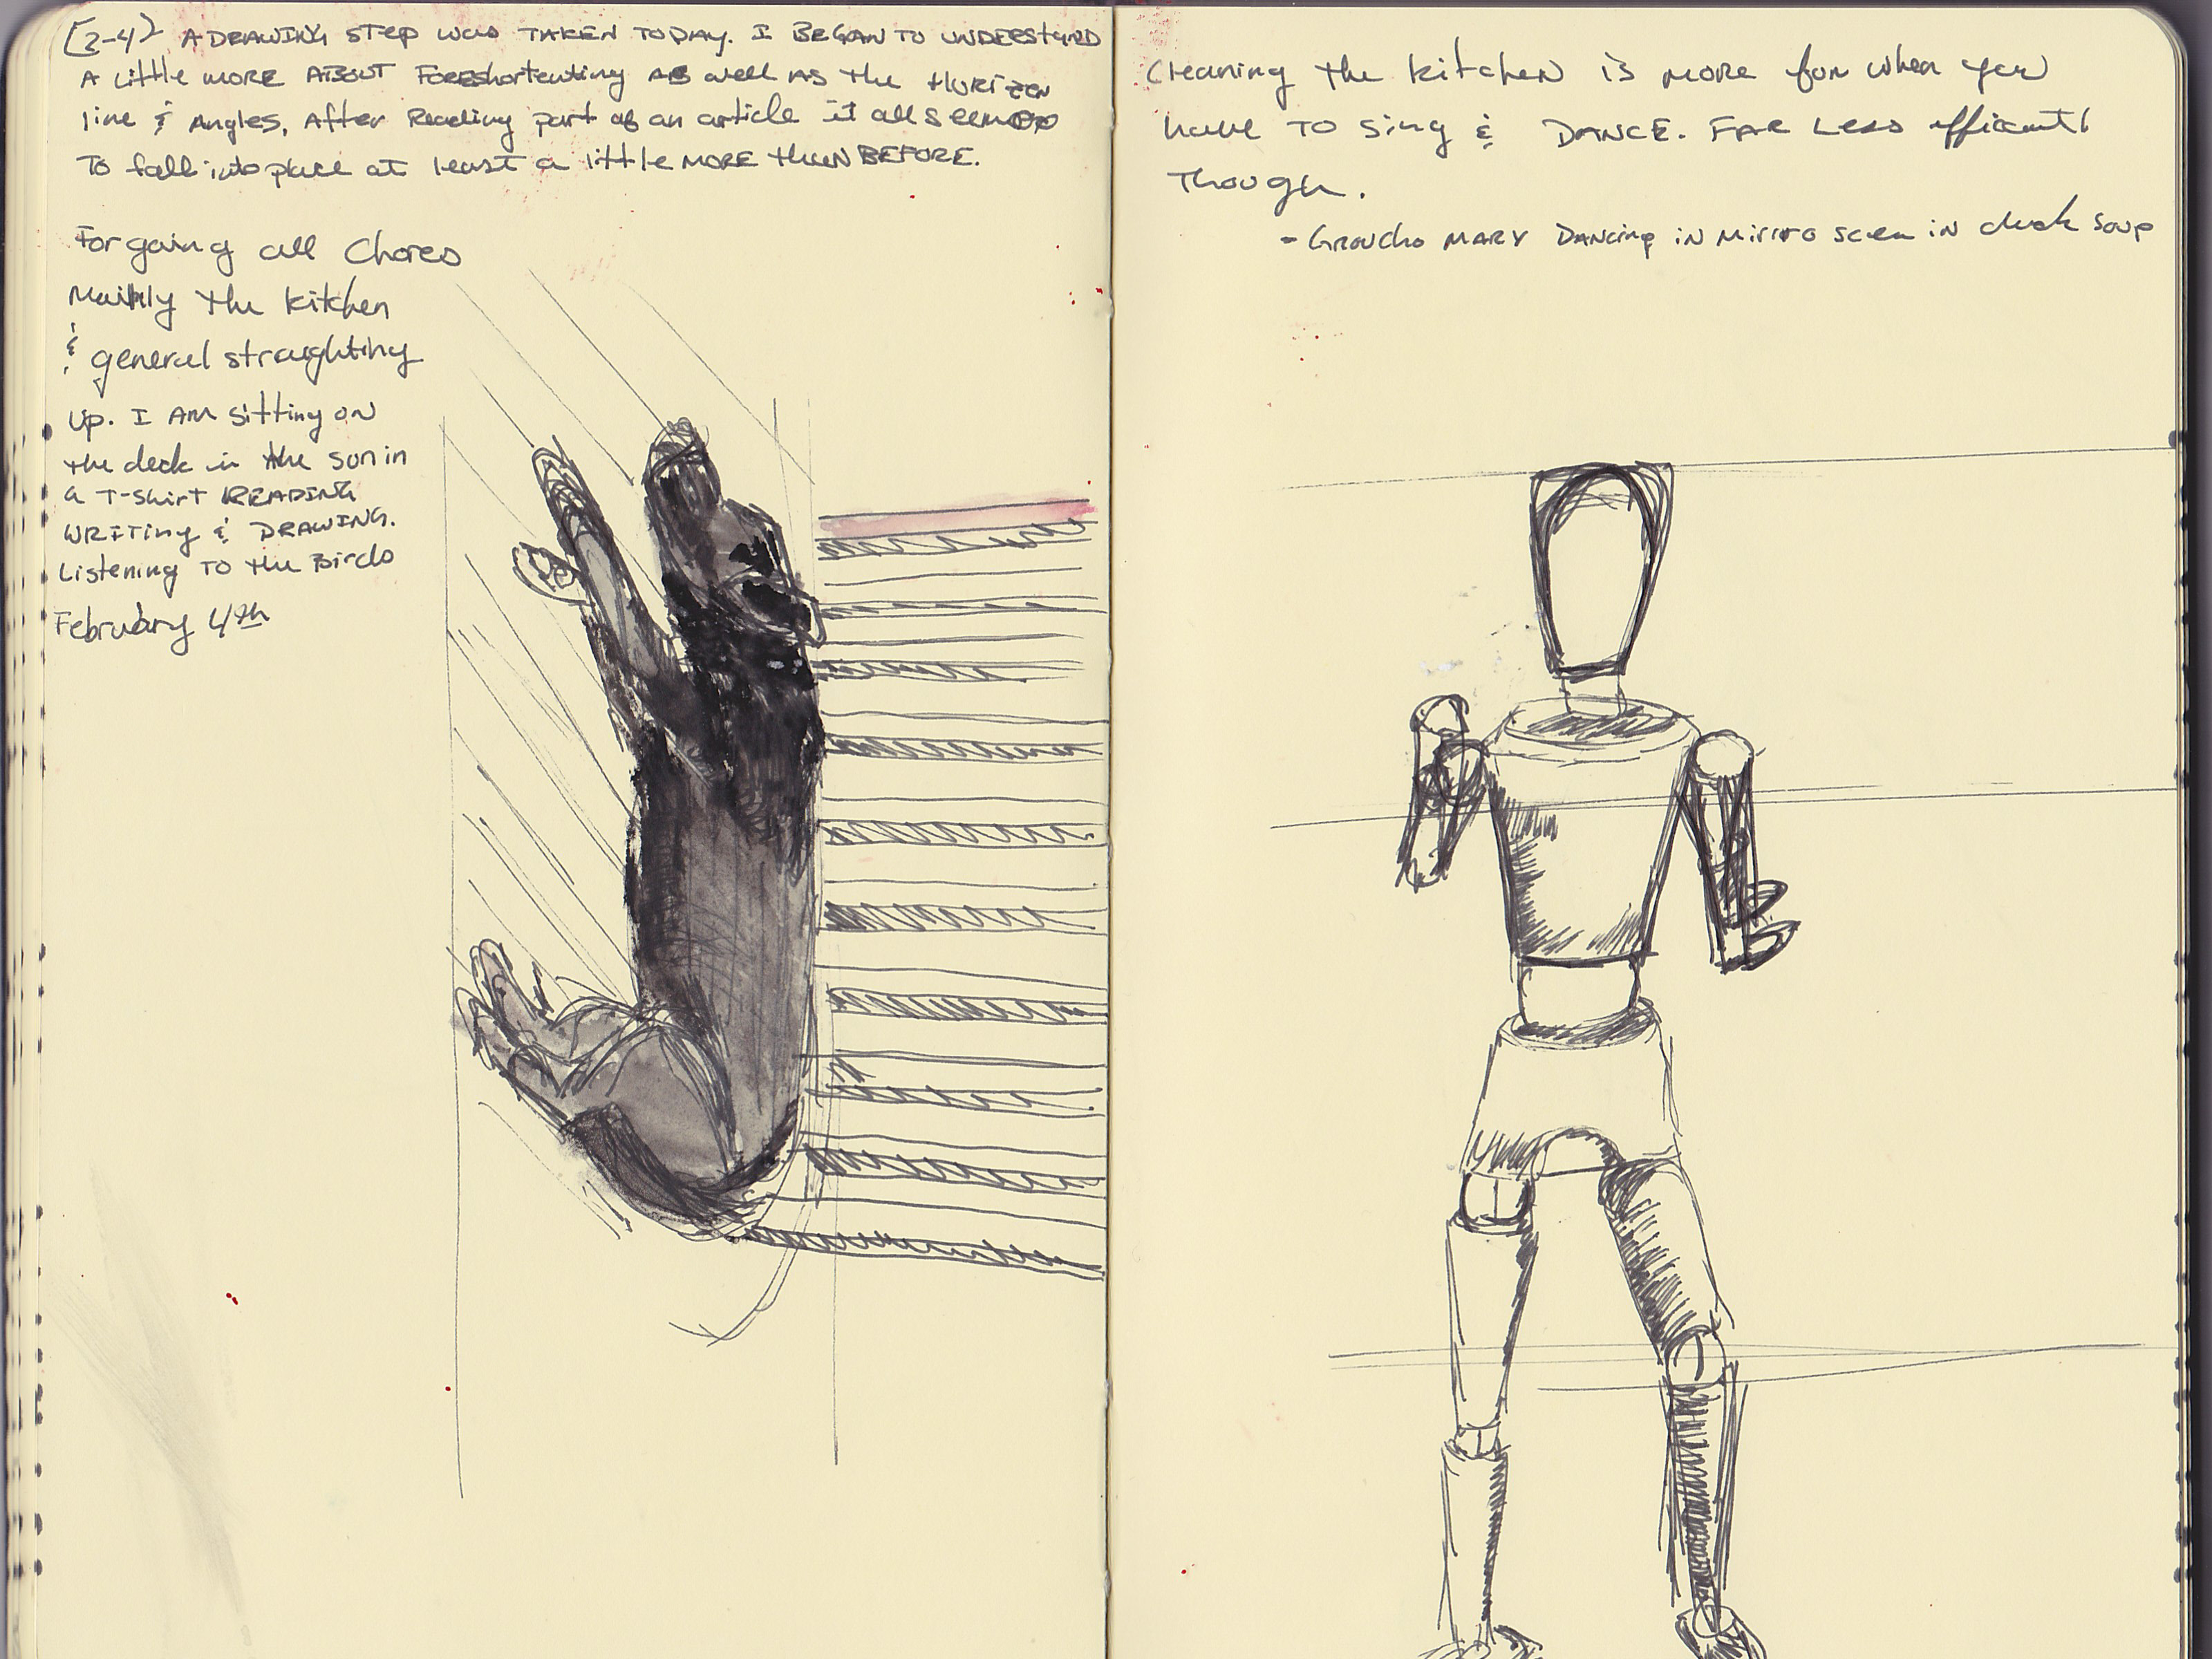 [2-4] A DRAWING STEP WAS TAKEN TODAY. I BEGAN TO UNDERSTAND
A Little MORE ABOUT Foreshortening AS well AS the HORIZEN
line & Angles. After Reading part of an article it all seemed
TO fall into place at least a little MORE then BEFORE.
Forgoing all Chores
Mainly the kitchen
& general straughting
Up. I AM Sitting on
the deck in the son in
a T-shirt READING
WRITING & DRAWING.
Listening TO the Birds
February 4th
Cleaning the kitchen is more fun when you
have TO Sing & DANCE. FAR Less efficient
Though.
- Groucho MARX DANcing iN Mirror in duck soup